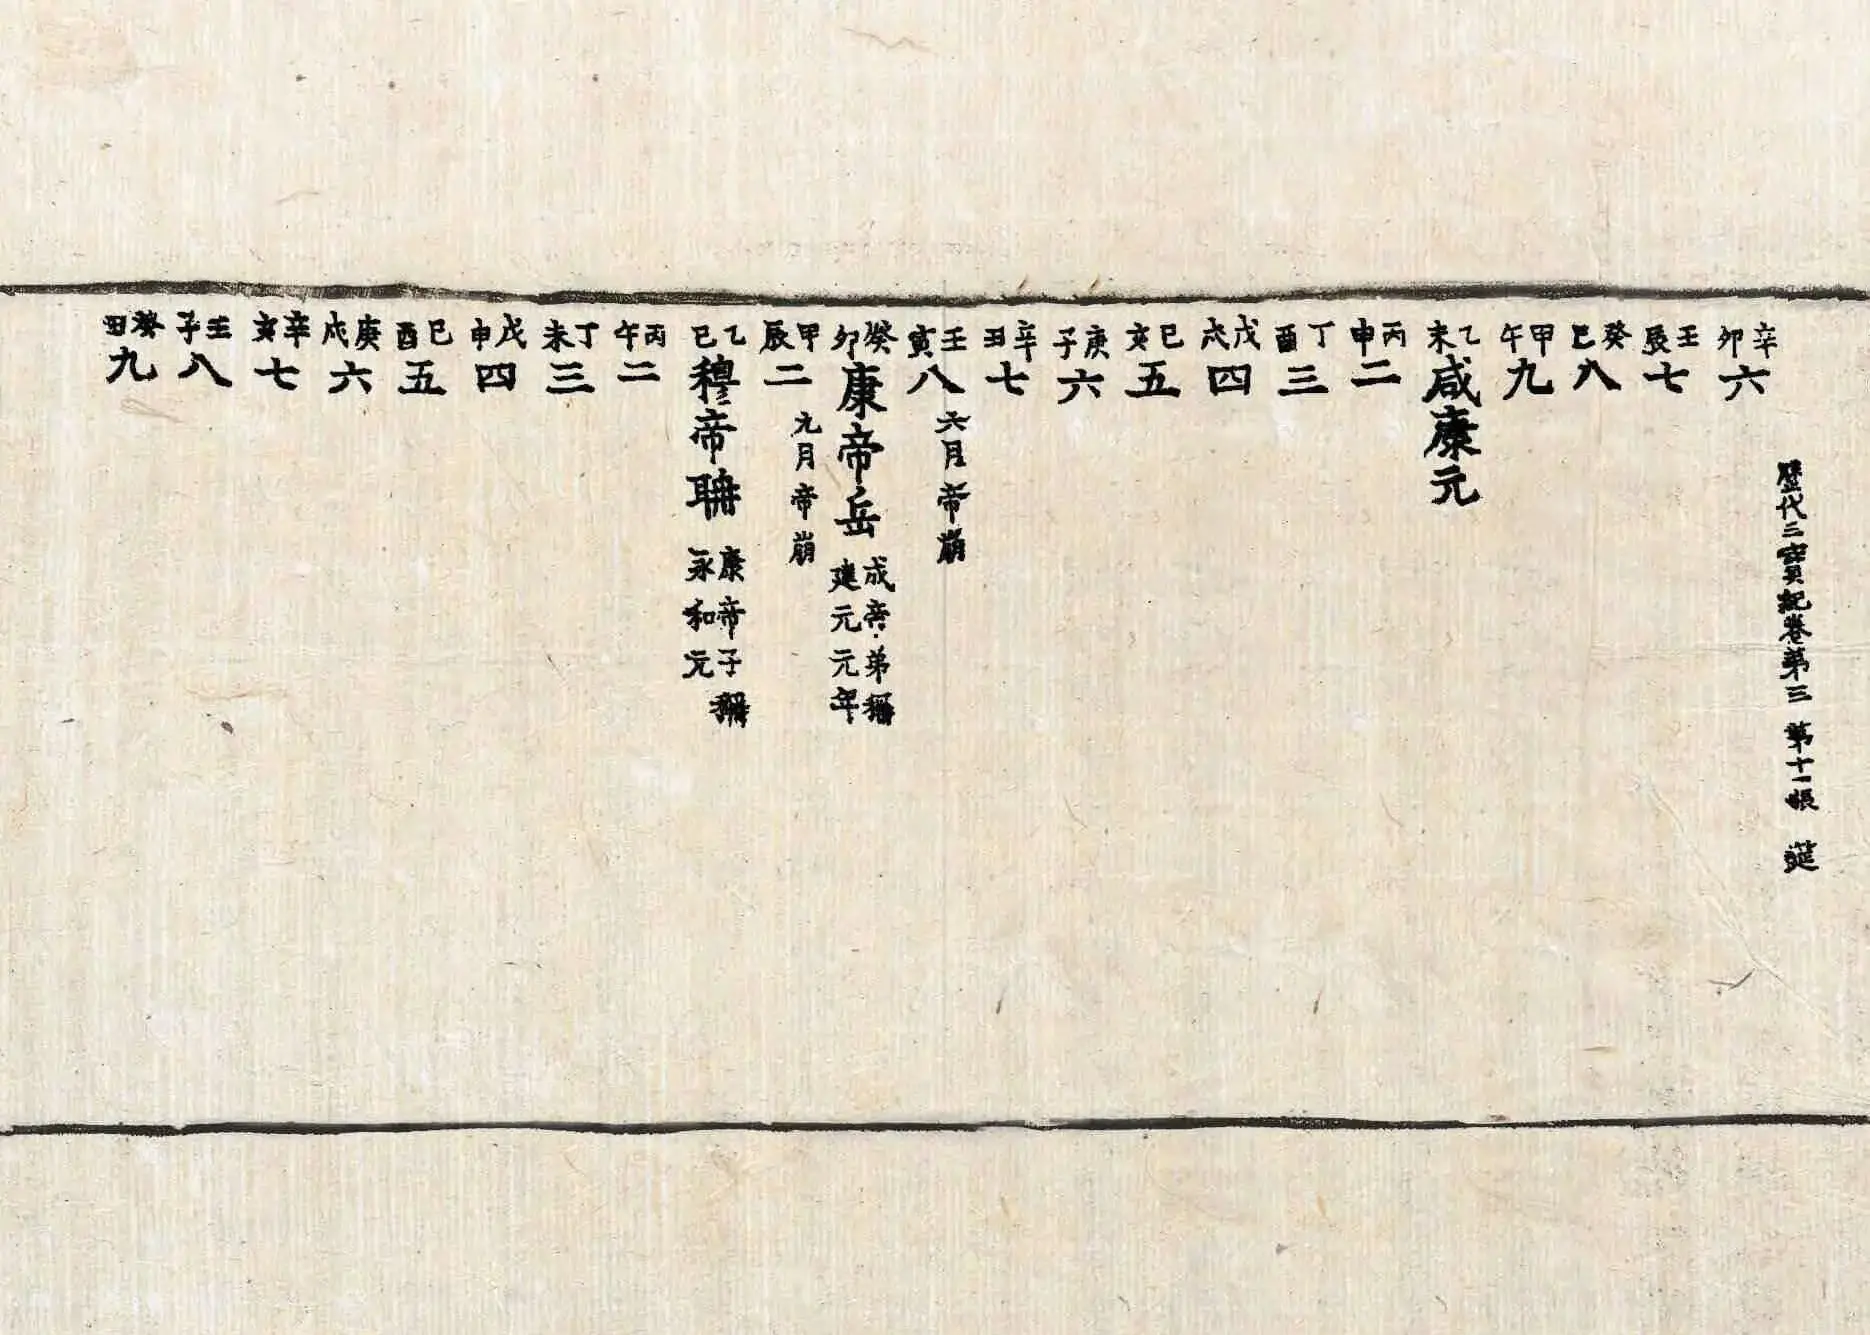 歷代三寶紀卷第三 第十一帳 莚
辛卯六
壬辰七
癸巳八
甲午九
乙未咸康元
丙申二
丁酉三
戊戌四
己亥五
庚子六
辛丑七
壬寅八 六月帝崩
癸卯康帝岳 成帝弟稱建元元年
甲辰二 九月帝崩
乙巳穆帝聃 康帝子稱永和元
丙午二
丁未三
戊申四
己酉五
庚戌六
辛亥七
壬子八
癸丑九